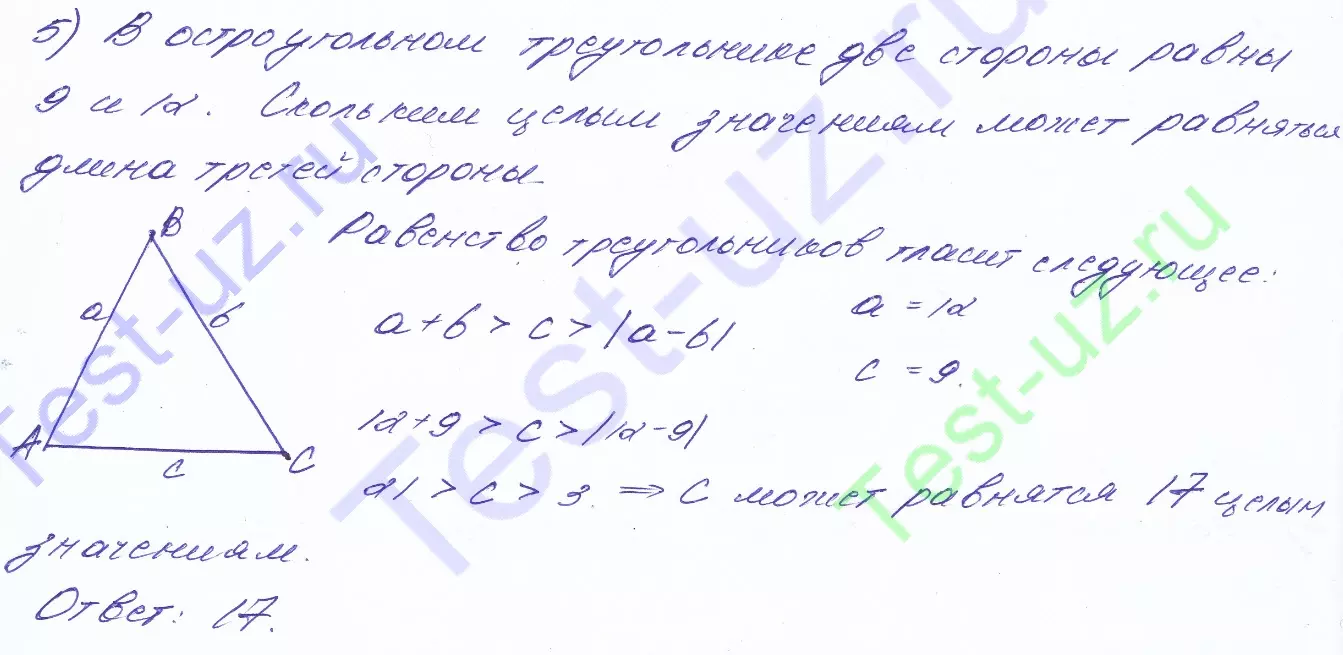 5) В остроугольном треугольнике две стороны равны
9 и 12. Скольким целым значениям может равняться
длина третей стороны
B
Равенство треугольников гласит следующее:
a
b
a+b > c > |a-b|
a = 12
c = 9.
12+9 > c > |12-9|
A
c
C
21 > c > 3. ⇒ C может равнятся 17 целым
значениям.
Ответ: 17.
Test-uz.ru
Test-uz.ru
Test-uz.ru